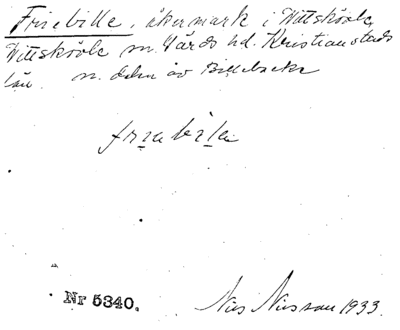 Frusebille, åkermark i Vittskövle,
Vittskövle sn. Gärds hd. Kristianstads
län. n. delen av Billebacke
Nr 5340.
Nils Nilsson 1933.